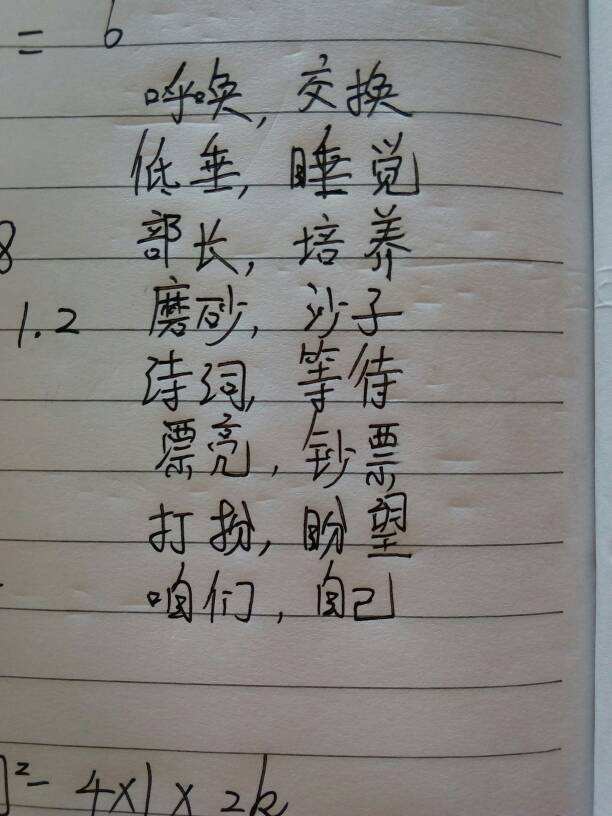 = 6
呼唤, 交换
低垂, 睡觉
部长, 培养
8
1.2 磨砂, 沙子
诗词, 等待
票亮, 钞票
打扮, 盼望
咱们, 自己
]²- 4×1×2k